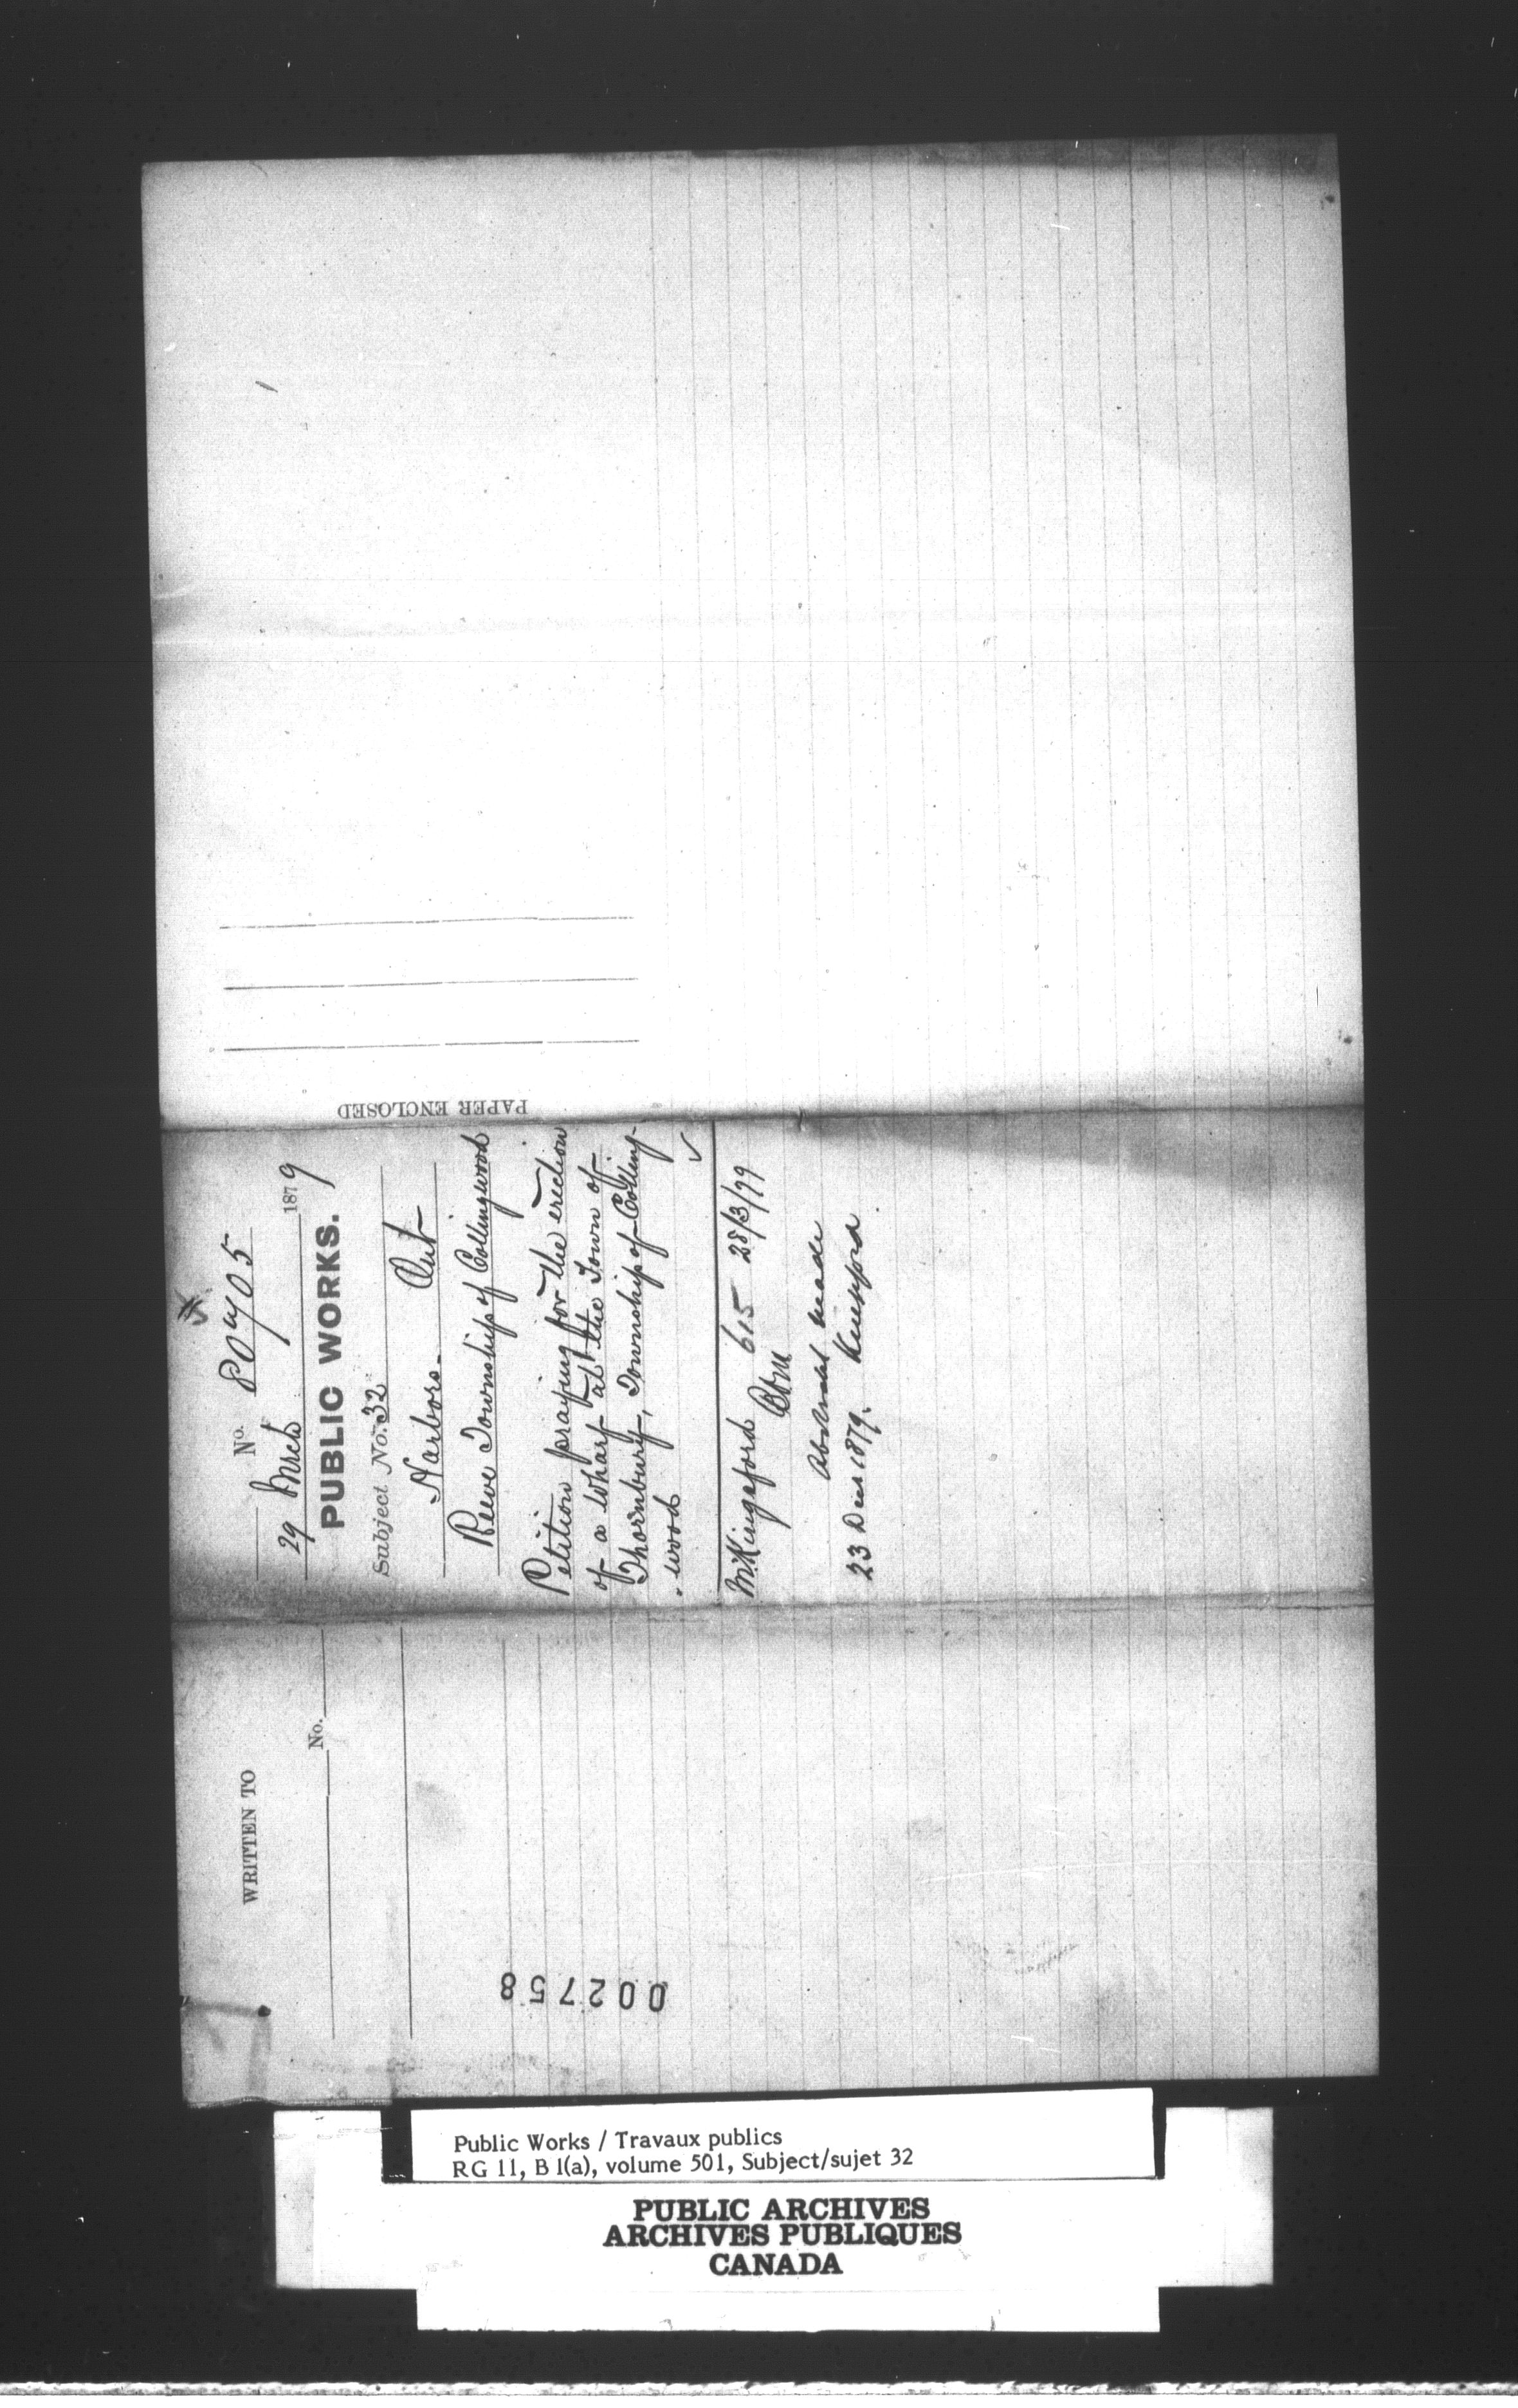 No. 80705
29 March 1879
PUBLIC WORKS.
Subject No. 32
Harbors. Ont
Reeve Township of Collingwood
Petition praying for the erection
of a wharf at the Town of
Thornbury, Township of Colling-
wood
Mr Kingsford 615 28/3/79
Abstract made
23 Dec 1879. Kingsford
PAPER ENCLOSED
WRITTEN TO
No.
002758
Public Works / Travaux publics
RG 11, B 1(a), volume 501, Subject/sujet 32
PUBLIC ARCHIVES
ARCHIVES PUBLIQUES
CANADA